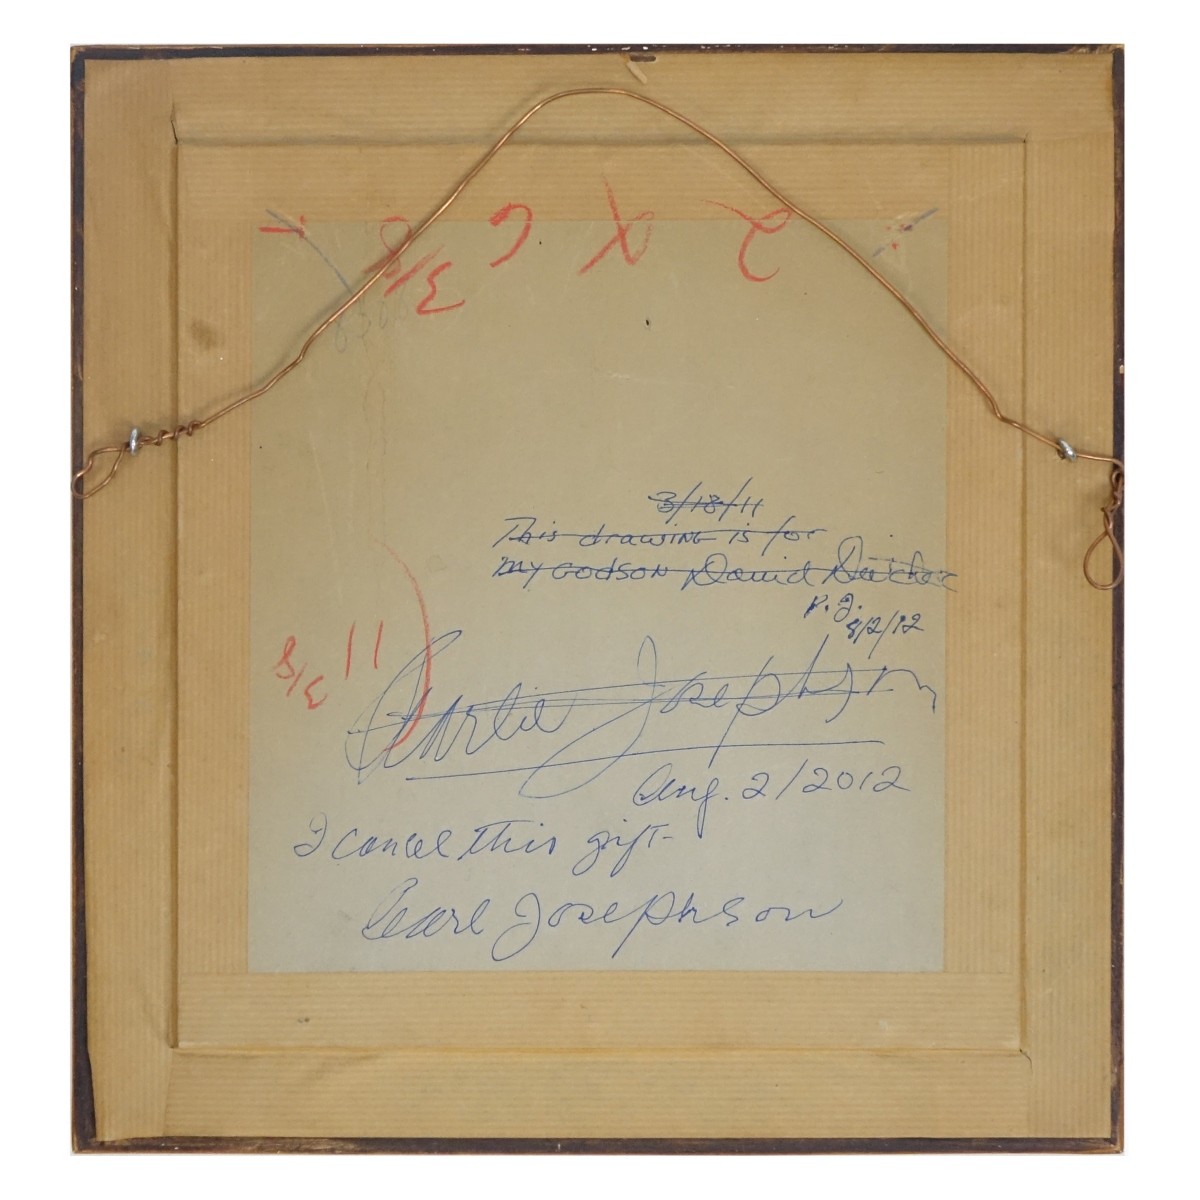 2 X 6 3/8
3/18/11
This drawing is for
my GODSON David
P.J.
8/2/12
11 3/8
Josephson
Aug. 2/2012
I cancel this gift-
Pearl Josephson